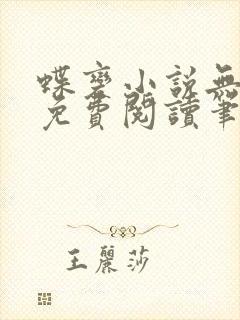 蝶變小說無
免費閱讀筆
王麗莎